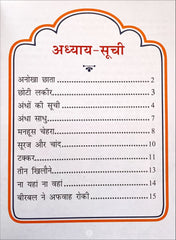 अध्याय-सूची
अनोखा छाता .......................... 2
छोटी लकीर .......................... 3
अंधों की सूची ........................ 4
अंधा साधु ............................. 7
मनहूस चेहरा ......................... 8
सूरज और चांद ..................... 10
टक्कर ................................ 11
तीन खिलौने ........................ 13
ना यहां ना वहां ................... 14
बीरबल ने अफवाह रोकी ........ 15